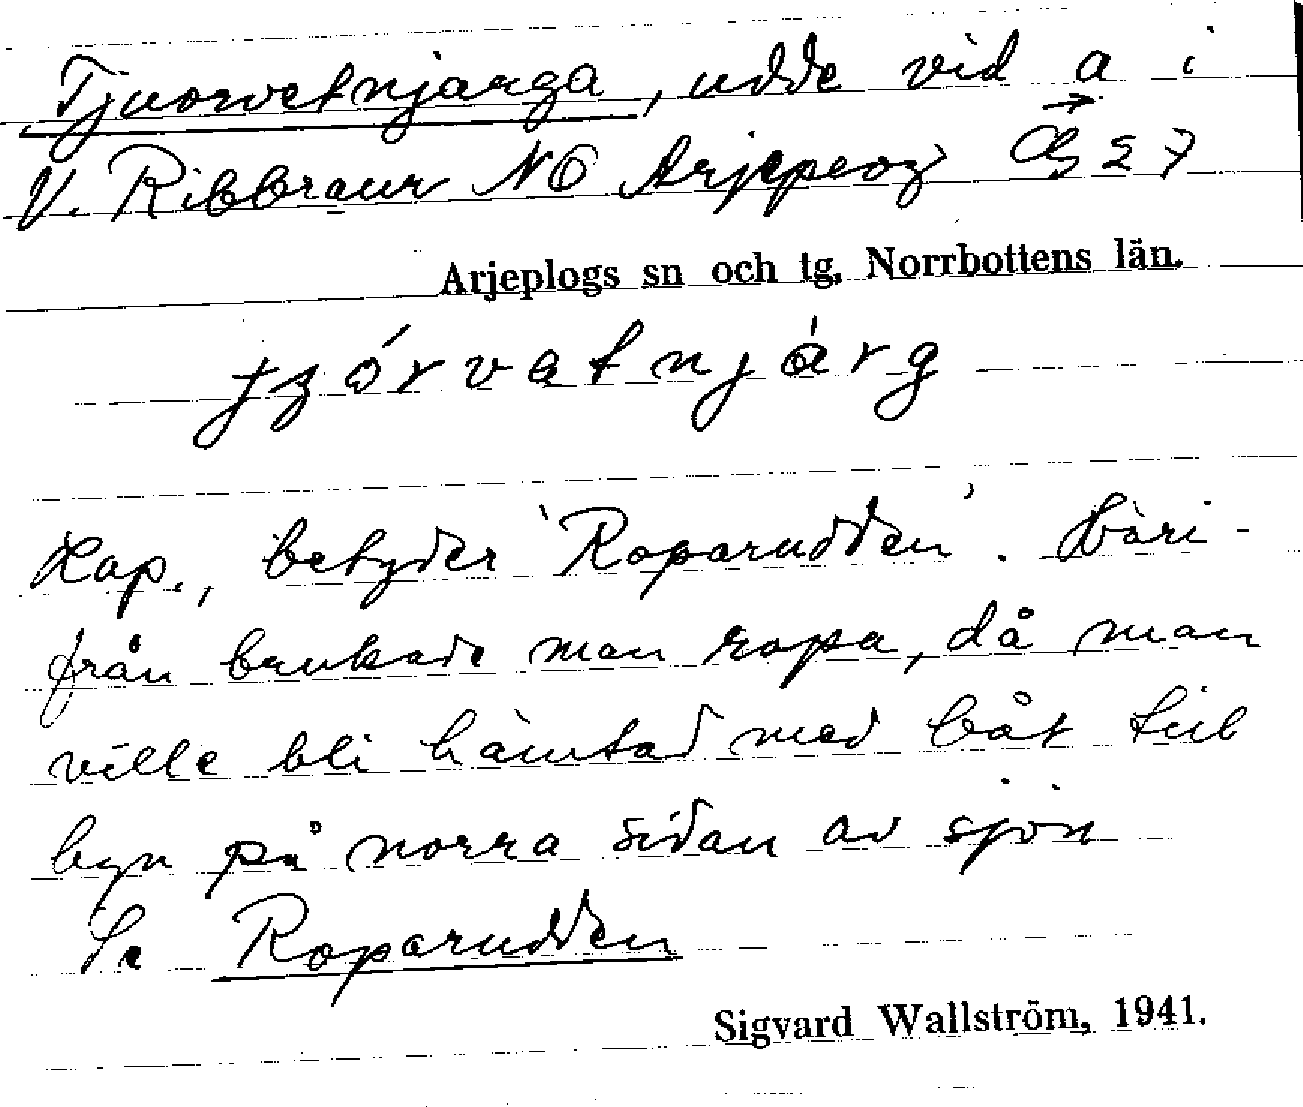 Tjuorvetnjarga, udde vid a i
V. Ribbraur NO Arjepeog 27
Arjeplogs sn och tg, Norrbottens län.
Lap., betyder 'Roparudden'. Häri-
från brukade man ropa, då man
ville bli hämtad med båt till
byn på norra sidan av sjön
Se Roparudden
Sigvard Wallström, 1941.